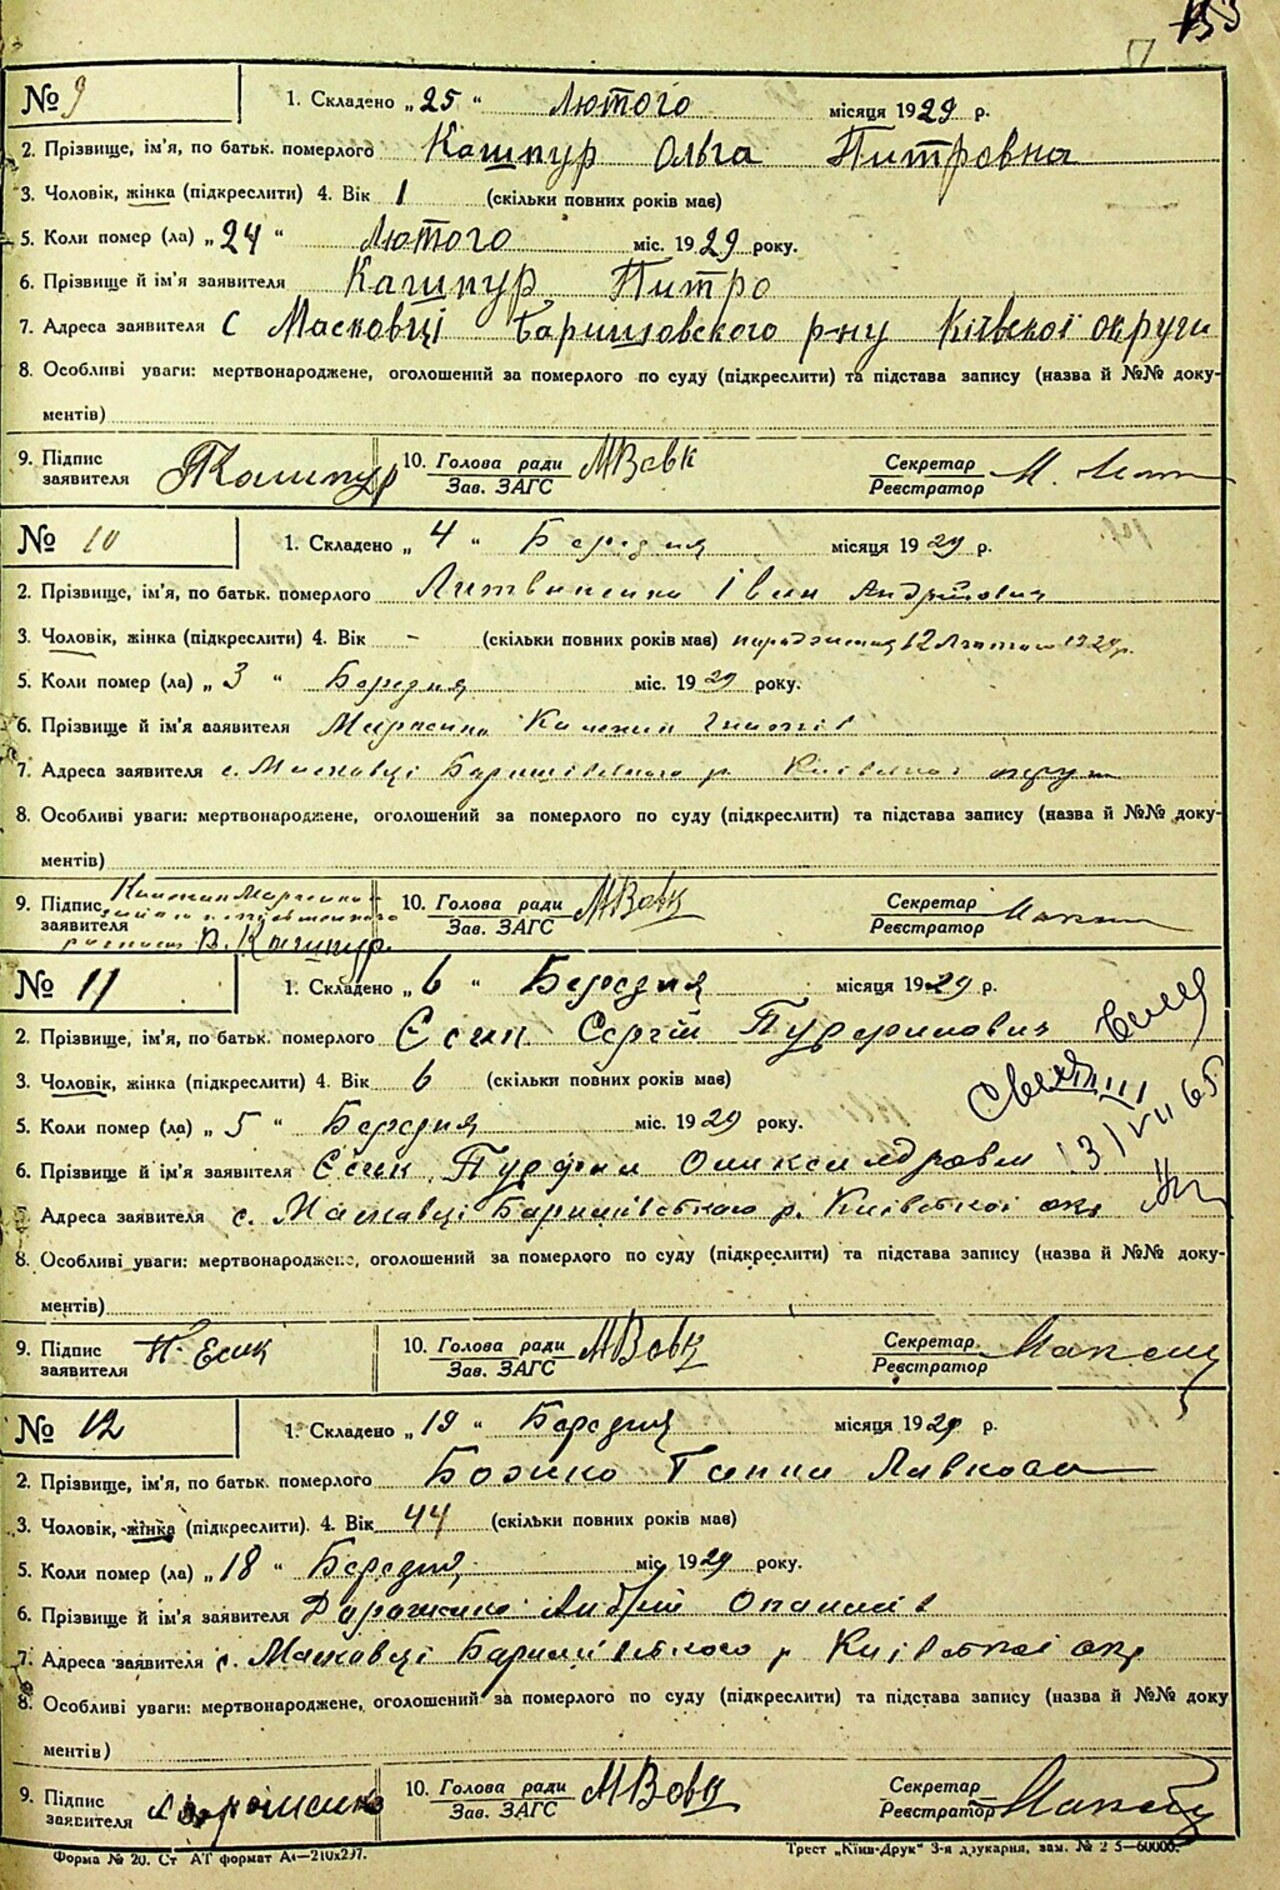 153
№ 9 1. Складено „ 25 “ Лютого місяця 1929 р.
2. Прізвище, ім'я, по батьк. померлого Кашпур Ольга Питровна
3. Чоловік, жінка (підкреслити) 4. Вік 1 (скільки повних років має)
5. Коли помер (ла) „ 24 “ Лютого міс. 1929 року.
6. Прізвище й ім'я заявителя Кашпур Питро
7. Адреса заявителя с Масковці Баришовского р-ну Київскої округи
8. Особливі уваги: мертвонароджене, оголошений за померлого по суду (підкреслити) та підстава запису (назва й №№ доку-
ментів)
9. Підпис заявителя ПКашпур 10. Голова ради Зав. ЗАГС МВовк Секретар Реєстратор М.
№ 10 1. Складено „ 4 “ Березня місяця 1929 р.
2. Прізвище, ім'я, по батьк. померлого Литвиненко Іван Андрійович
3. Чоловік, жінка (підкреслити) 4. Вік - (скільки повних років має) 12 Лютого 1929 р.
5. Коли помер (ла) „ 3 “ Березня міс. 1929 року.
6. Прізвище й ім'я заявителя
7. Адреса заявителя с. Масковці Баришівського р. Київської округи
8. Особливі уваги: мертвонароджене, оголошений за померлого по суду (підкреслити) та підстава запису (назва й №№ доку-
ментів)
9. Підпис заявителя В. Кашпур. 10. Голова ради Зав. ЗАГС МВовк Секретар Реєстратор
№ 11 1. Складено „ 6 “ Березня місяця 1929 р.
2. Прізвище, ім'я, по батьк. померлого Єсик Сергій
3. Чоловік, жінка (підкреслити) 4. Вік 6 (скільки повних років має)
5. Коли помер (ла) „ 5 “ Березня міс. 1929 року.
6. Прізвище й ім'я заявителя Єсик
31 VII 65
7. Адреса заявителя с. Масковці Баришівського р. Київської окр
8. Особливі уваги: мертвонароджене, оголошений за померлого по суду (підкреслити) та підстава запису (назва й №№ доку-
ментів)
9. Підпис заявителя П. Есик 10. Голова ради Зав. ЗАГС МВовк Секретар Реєстратор
№ 12 1. Складено „ 19 “ Березня місяця 1929 р.
2. Прізвище, ім'я, по батьк. померлого Божко Ганна
3. Чоловік, жінка (підкреслити). 4. Вік 44 (скільки повних років має)
5. Коли помер (ла) „ 18 “ Березня міс. 1929 року.
6. Прізвище й ім'я заявителя Андрій
7. Адреса заявителя с. Масковці Баришівського р Київської окр
8. Особливі уваги: мертвонароджене, оголошений за померлого по суду (підкреслити) та підстава запису (назва й №№ доку
ментів)
9. Підпис заявителя 10. Голова ради Зав. ЗАГС МВовк Секретар Реєстратор
Форма № 20. Ст АТ формат А4—210х297. Трест „Київ-Друк“ 3-я друкарня, зам. № 2 5—60000.